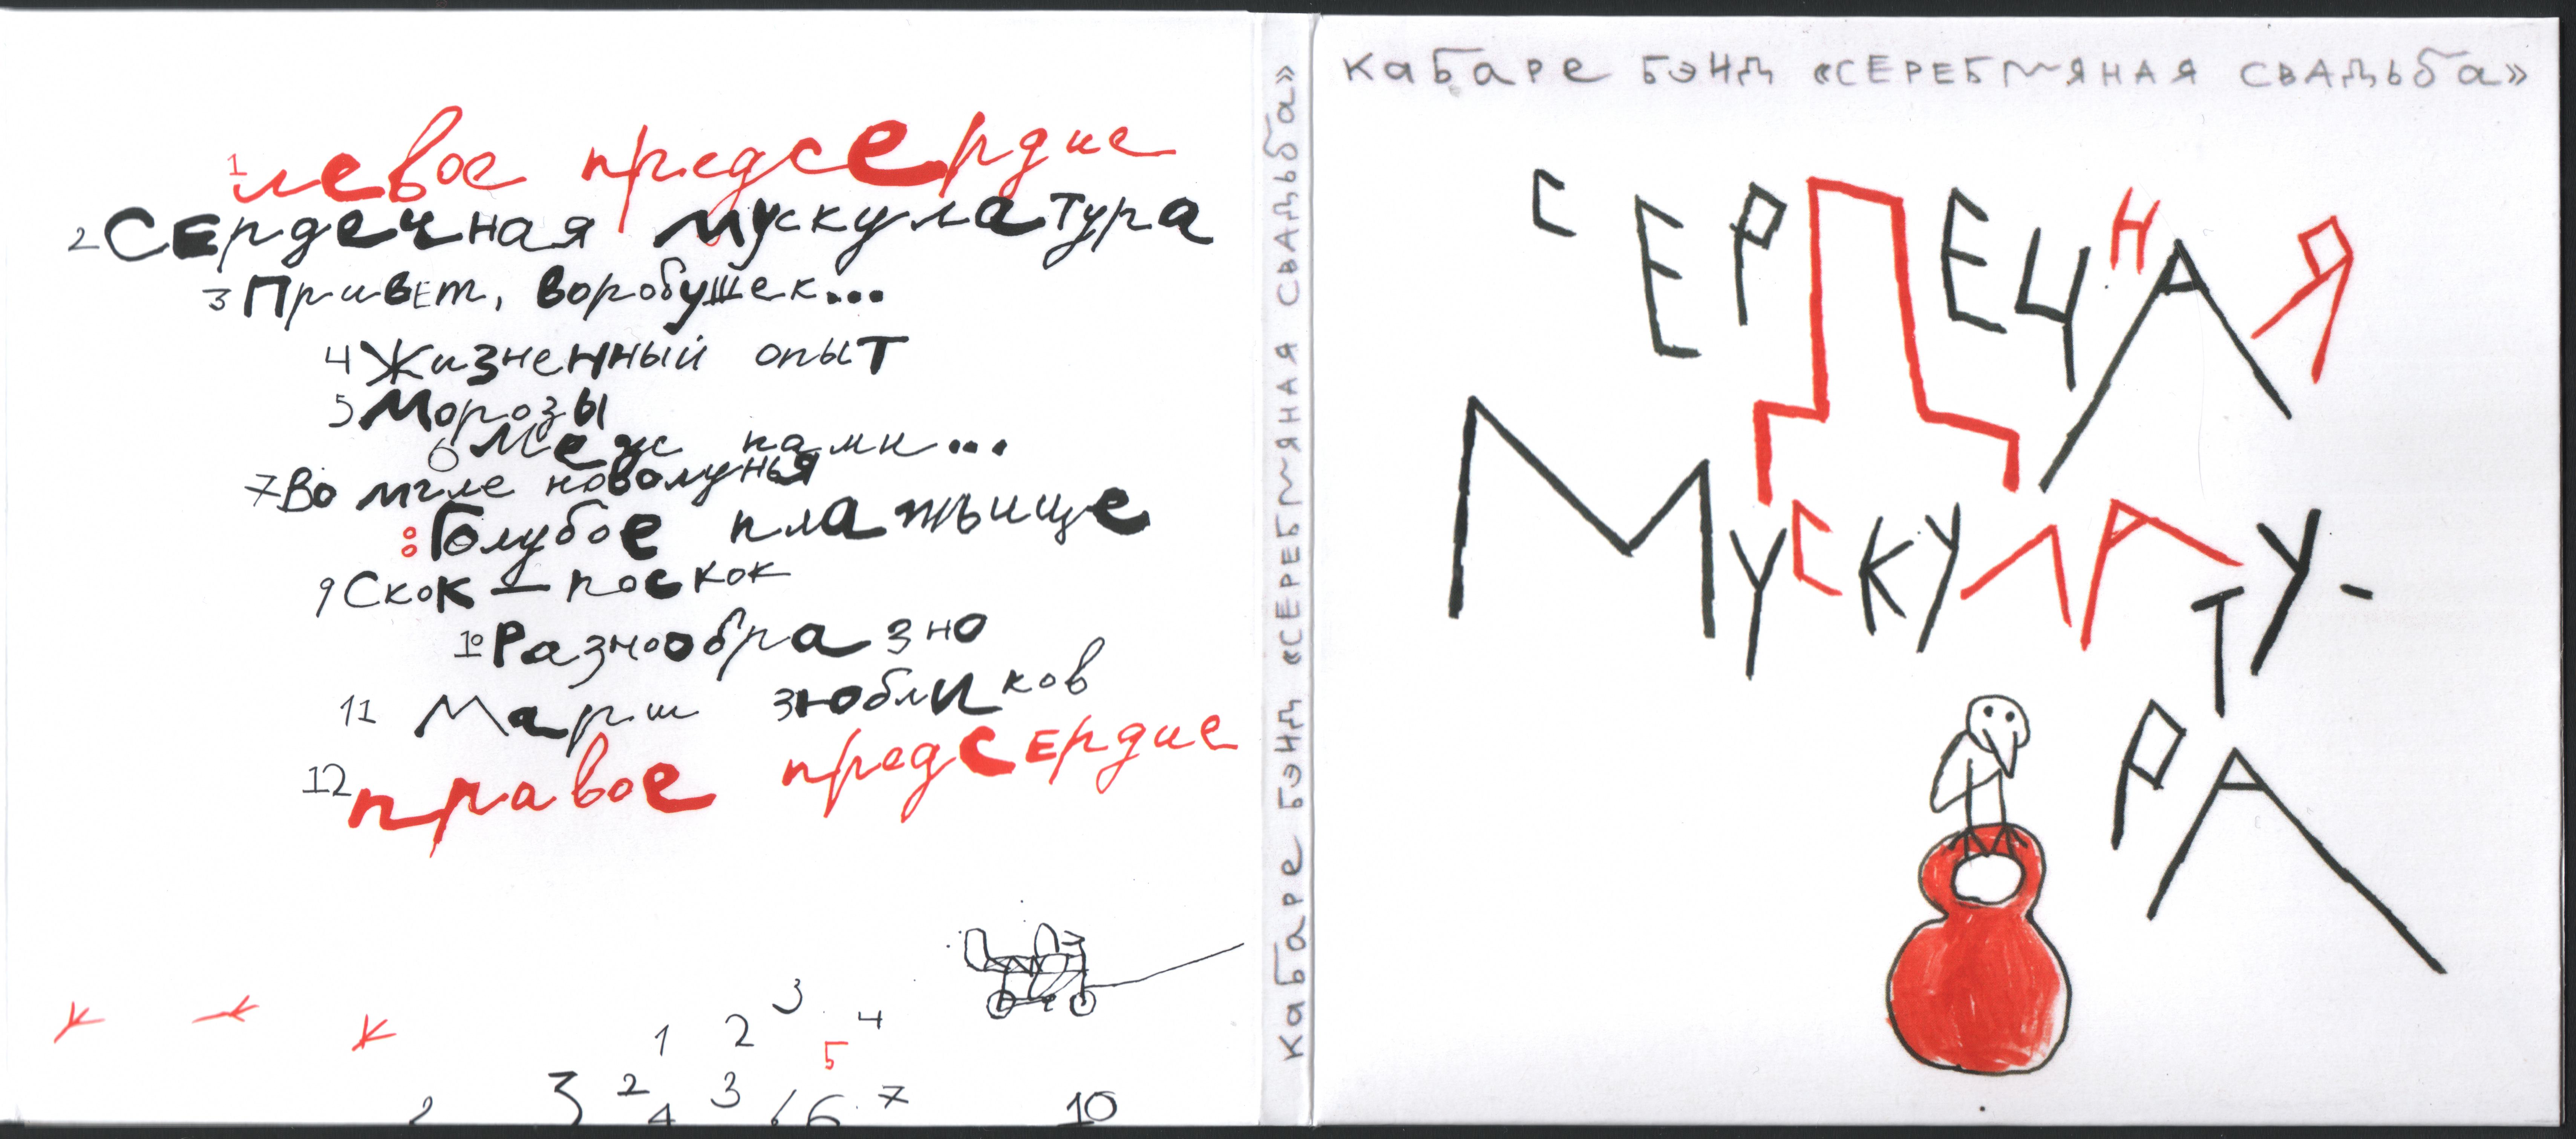 1 левое предсердие
2 Сердечная мускулатура
3 Привет, воробушек...
4 Жизненный опыт
5 Морозы
6 Меж нами...
7 Во мгле новолунья
8 Голубое платьице
9 Скок – поскок
10 Разнообразно
11 Марш зюбликов
12 правое предсердие
3
1 2 4
5
3 2 3 7
2 4 6 10
Кабаре бэнд «СЕРЕБРЯНАЯ СВАДЬБа»
Кабаре бэнд «СЕРЕБРЯНАЯ СВАДЬБа»
СЕРДЕЧНАЯ
МУСКУЛАТУ-
РА